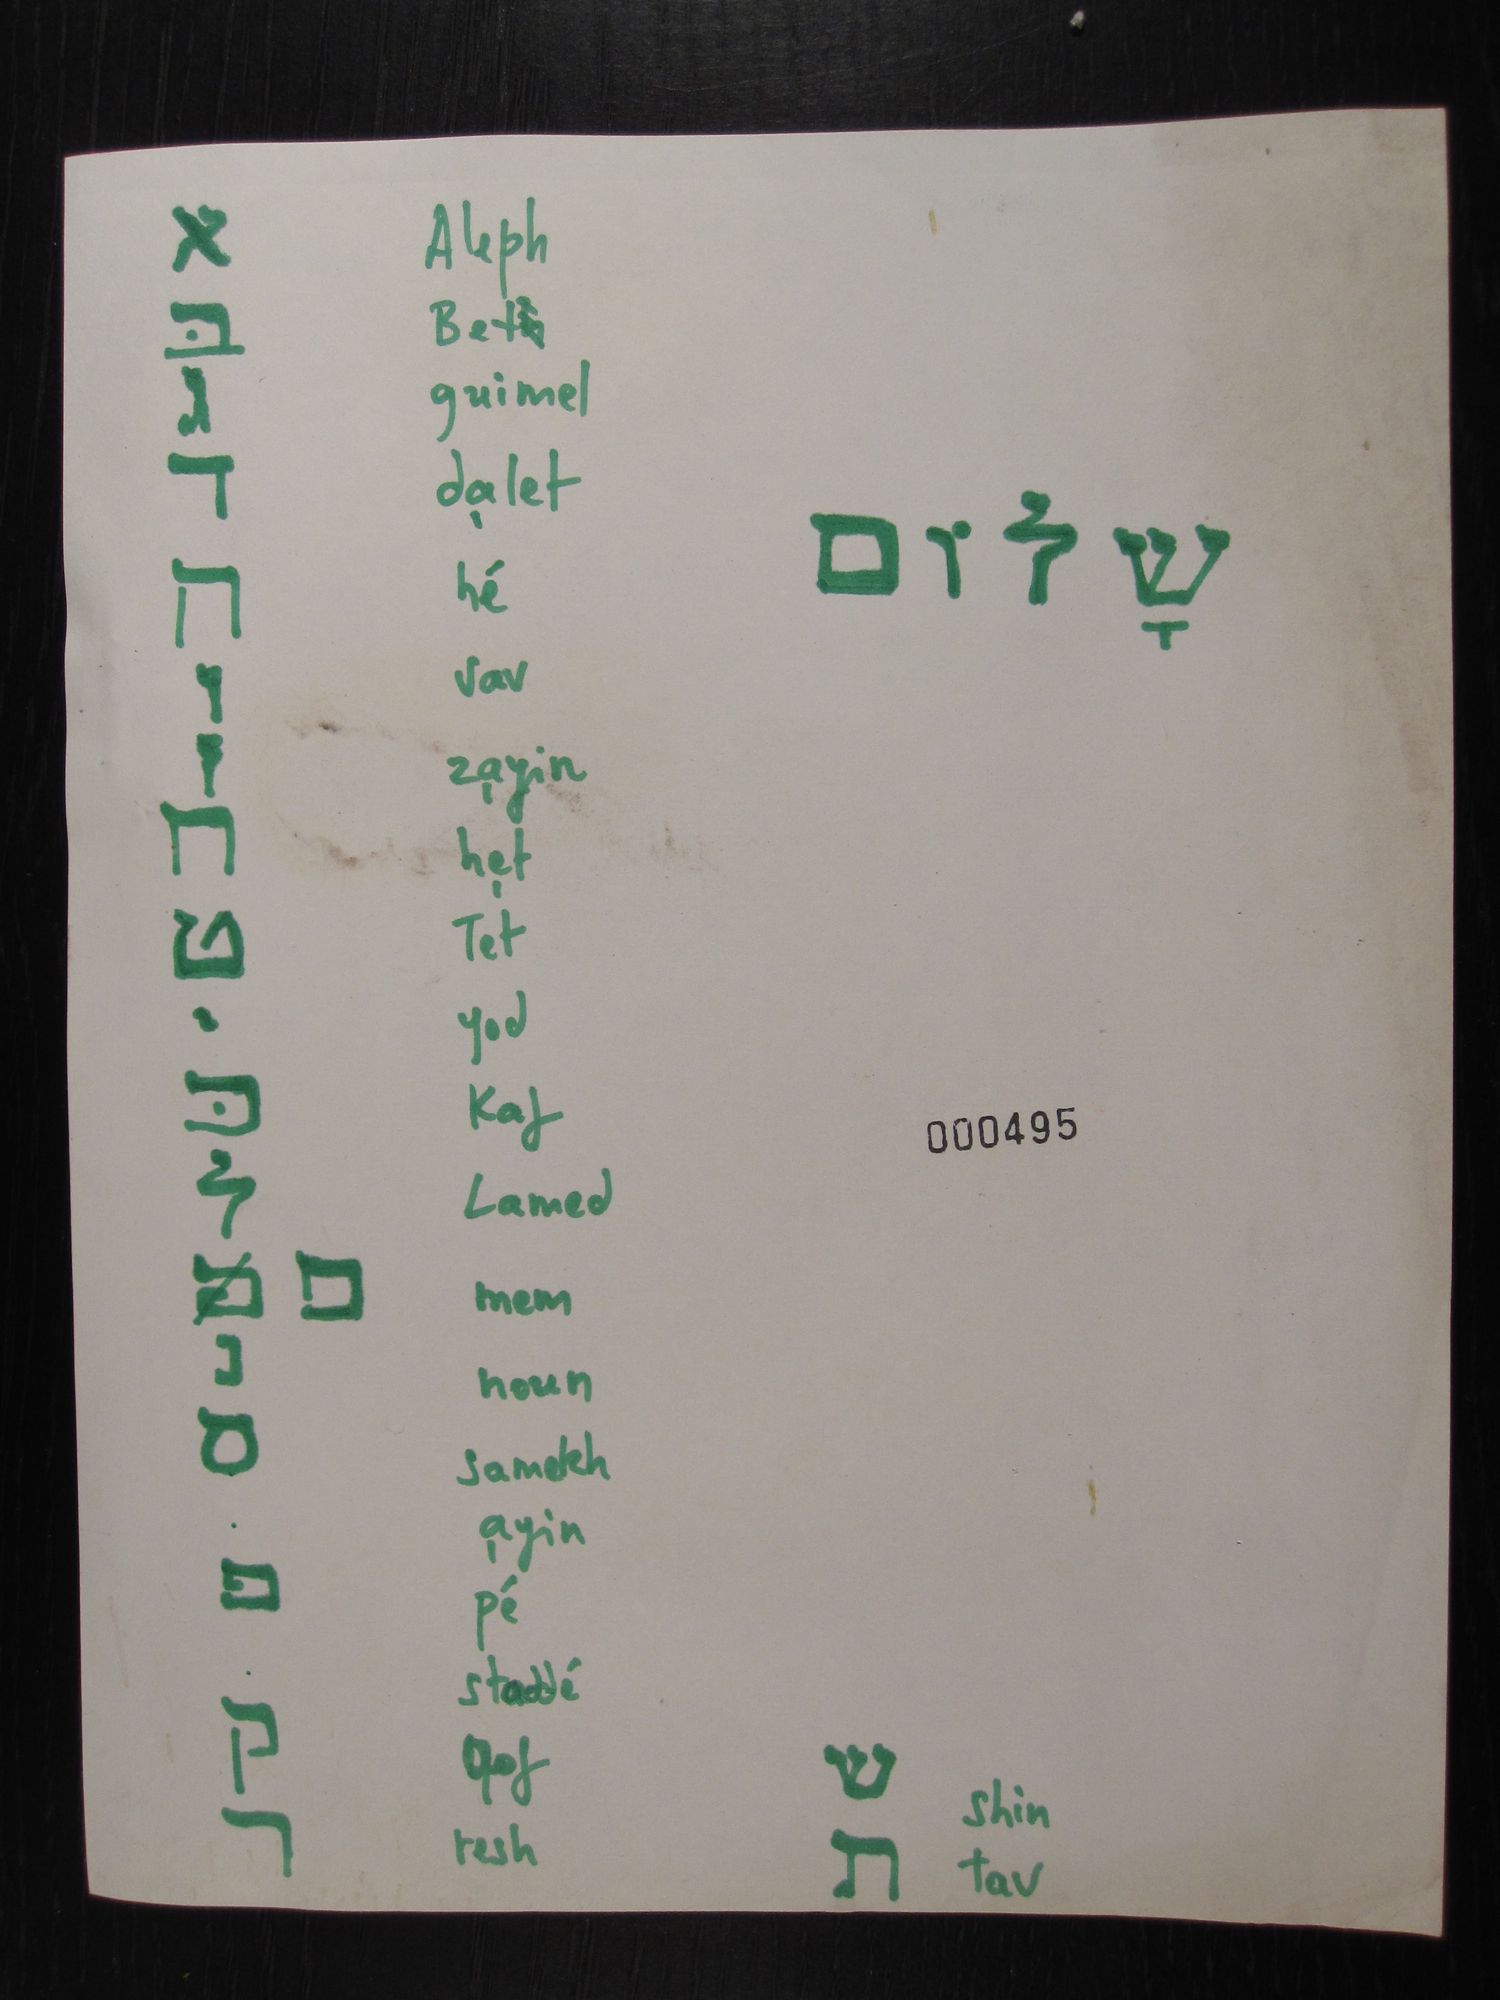 א Aleph
בּ Bet
ג guimel
ד dalet
ה hé
ו vav
ז zayin
ח het
ט Tet
י yod
כּ Kaf
ל Lamed
ם mem
נ noun
ס samekh
ayin
פ pé
staddé
ק Qof
ר resh
שָלום
000495
ש shin
ת tav